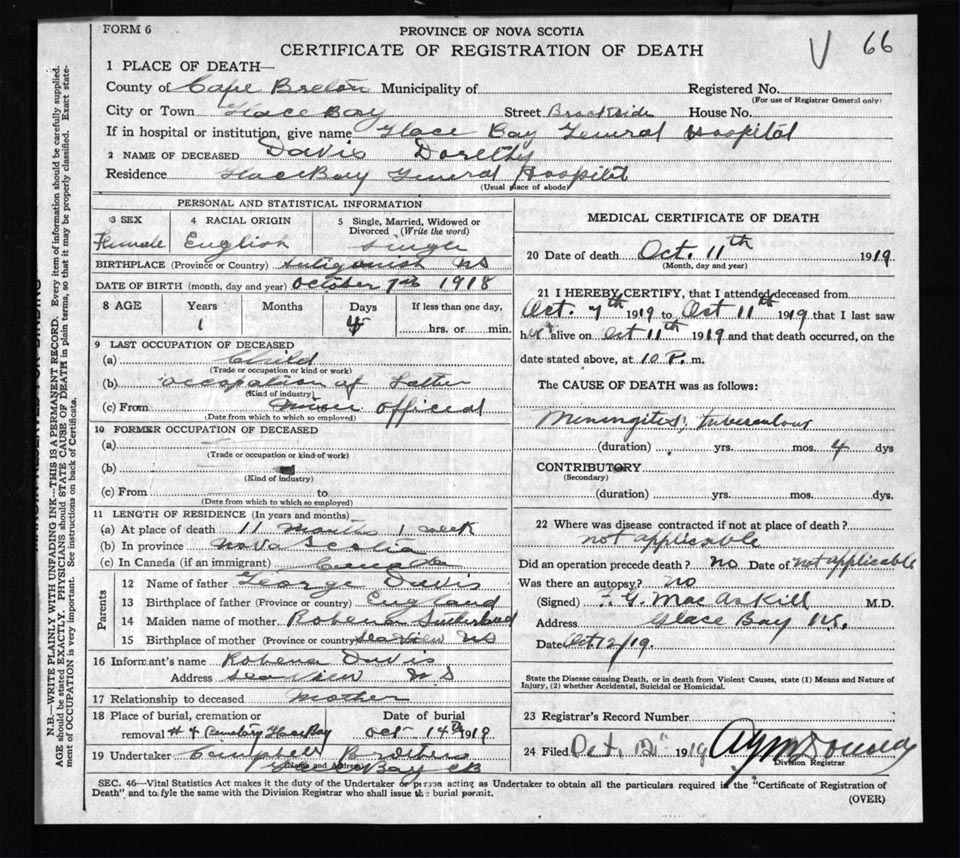 FORM 6
PROVINCE OF NOVA SCOTIA
CERTIFICATE OF REGISTRATION OF DEATH
V 66
1 PLACE OF DEATH—
County of Cape Breton Municipality of Registered No.
(For use of Registrar General only)
City or Town Glace Bay Street Brookside House No.
If in hospital or institution, give name Glace Bay General Hospital
2 NAME OF DECEASED Davis Dorethy
Residence Glace Bay General Hospital
(Usual place of abode)
PERSONAL AND STATISTICAL INFORMATION
3 SEX 4 RACIAL ORIGIN 5 Single, Married, Widowed or Divorced (Write the word)
Female English Single
BIRTHPLACE (Province or Country) Antigonish NS
DATE OF BIRTH (month, day and year) October 7th 1918
8 AGE Years Months Days If less than one day,
1 4 hrs. or min.
9 LAST OCCUPATION OF DECEASED
(a) Child
(Trade or occupation or kind of work)
(b) occupation of Father
(Kind of industry)
(c) From official
(Date from which to which so employed)
10 FORMER OCCUPATION OF DECEASED
(a)
(Trade or occupation or kind of work)
(b)
(Kind of industry)
(c) From to
(Date from which to which so employed)
11 LENGTH OF RESIDENCE (In years and months)
(a) At place of death 11 months 1 week
(b) In province Nova Scotia
(c) In Canada (if an immigrant) Canada
Parents
12 Name of father George Davis
13 Birthplace of father (Province or country) England
14 Maiden name of mother Robena Sutherland
15 Birthplace of mother (Province or country) Seaview NS
16 Informant's name Robena Davis
Address Seaview N S
17 Relationship to deceased Mother
18 Place of burial, cremation or removal # 4 Cemetary Glace Bay Date of burial Oct 14th 1919
19 Undertaker Campbell Brothers
Glace Bay CB
MEDICAL CERTIFICATE OF DEATH
20 Date of death Oct. 11th 1919
(Month, day and year)
21 I HEREBY CERTIFY, that I attended deceased from
Oct. 7th 1919 to Oct 11th 1919 that I last saw
her alive on Oct 11th 1919 and that death occurred, on the
date stated above, at 10 P. m.
The CAUSE OF DEATH was as follows:
Meningites, tuberculous
(duration) yrs. mos. 4 dys
CONTRIBUTORY
(Secondary)
(duration) yrs. mos. dys.
22 Where was disease contracted if not at place of death?
not applicable
Did an operation precede death? no Date of not applicable
Was there an autopsy? no
(Signed) F. G. MacAskill M.D.
Address Glace Bay N.S.
Date Oct 12/19.
State the Disease causing Death, or in death from Violent Causes, state (1) Means and Nature of
Injury, (2) whether Accidental, Suicidal or Homicidal.
23 Registrar's Record Number
24 Filed Oct, 1919
Division Registrar
SEC. 46—Vital Statistics Act makes it the duty of the Undertaker or person acting as Undertaker to obtain all the particulars required in the "Certificate of Registration of
Death" and to fyle the same with the Division Registrar who shall issue the burial permit.
(OVER)
N.B.—WRITE PLAINLY WITH UNFADING INK—THIS IS A PERMANENT RECORD. Every item of information should be carefully supplied.
AGE should be stated EXACTLY. PHYSICIANS should STATE CAUSE OF DEATH in plain terms, so that it may be properly classified. Exact state-
ment of OCCUPATION is very important. See instructions on back of Certificate.